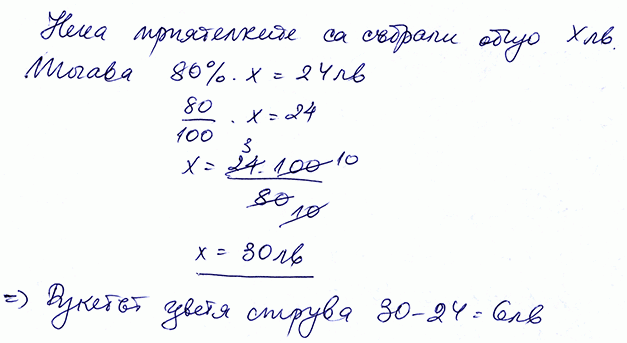 Нека приятелките са събрали общо x лв.
Тогава 80% . x = 24 лв
80/100 . x = 24
x = 24 . 100 / 80 3 10 10
x = 30 лв
=> Букетът цветя струва 30 - 24 = 6 лв